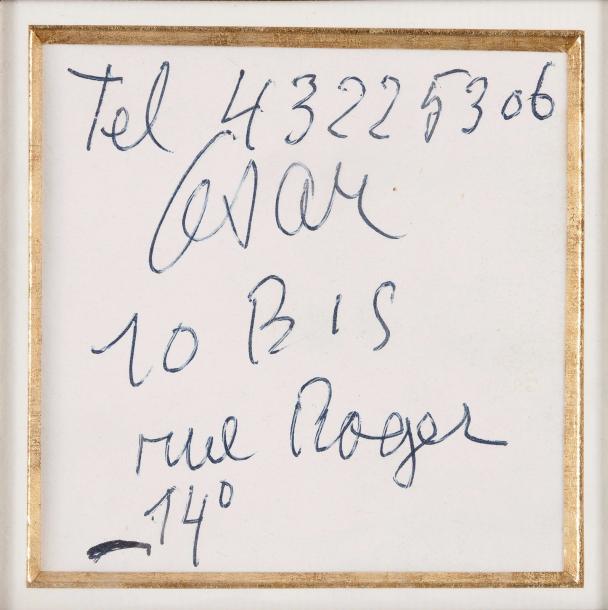 Tel 43225306
César
10 BIS
rue Roger
14°